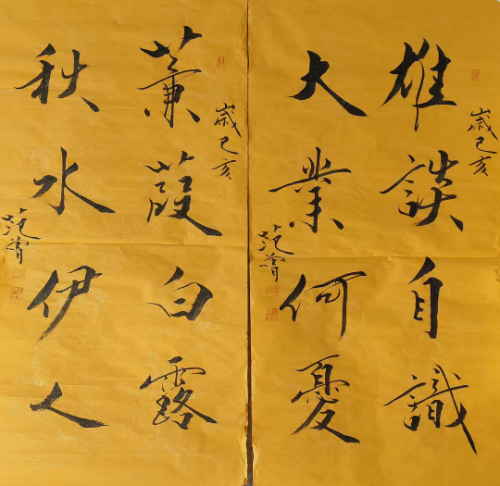 歲己亥
雄談自識
大業何憂
范
歲己亥
蒹葭白露
秋水伊人
范